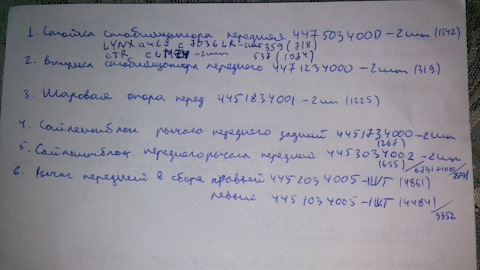 1. Стойка стабилизатора передняя 4475034000-2шт (1542)
LYNXauto C7036LR-2шт 359 (718)
CTR CLMZ4 -2шт 537 (1074)
2. Втулка стабилизатора переднего 4471234000-2шт (319)
3. Шаровая опора перед 4451834001-2шт (1225)
4. Сайлентблок рычага переднего задний 4451734000-2шт
(267)
5. Сайлентблок переднего рычага передний 4453034002-2шт
(655)
6. Рычаг передний в сборе правый 4452034005-1шт (4861)
левый 4451034005-1шт (4484)
9352